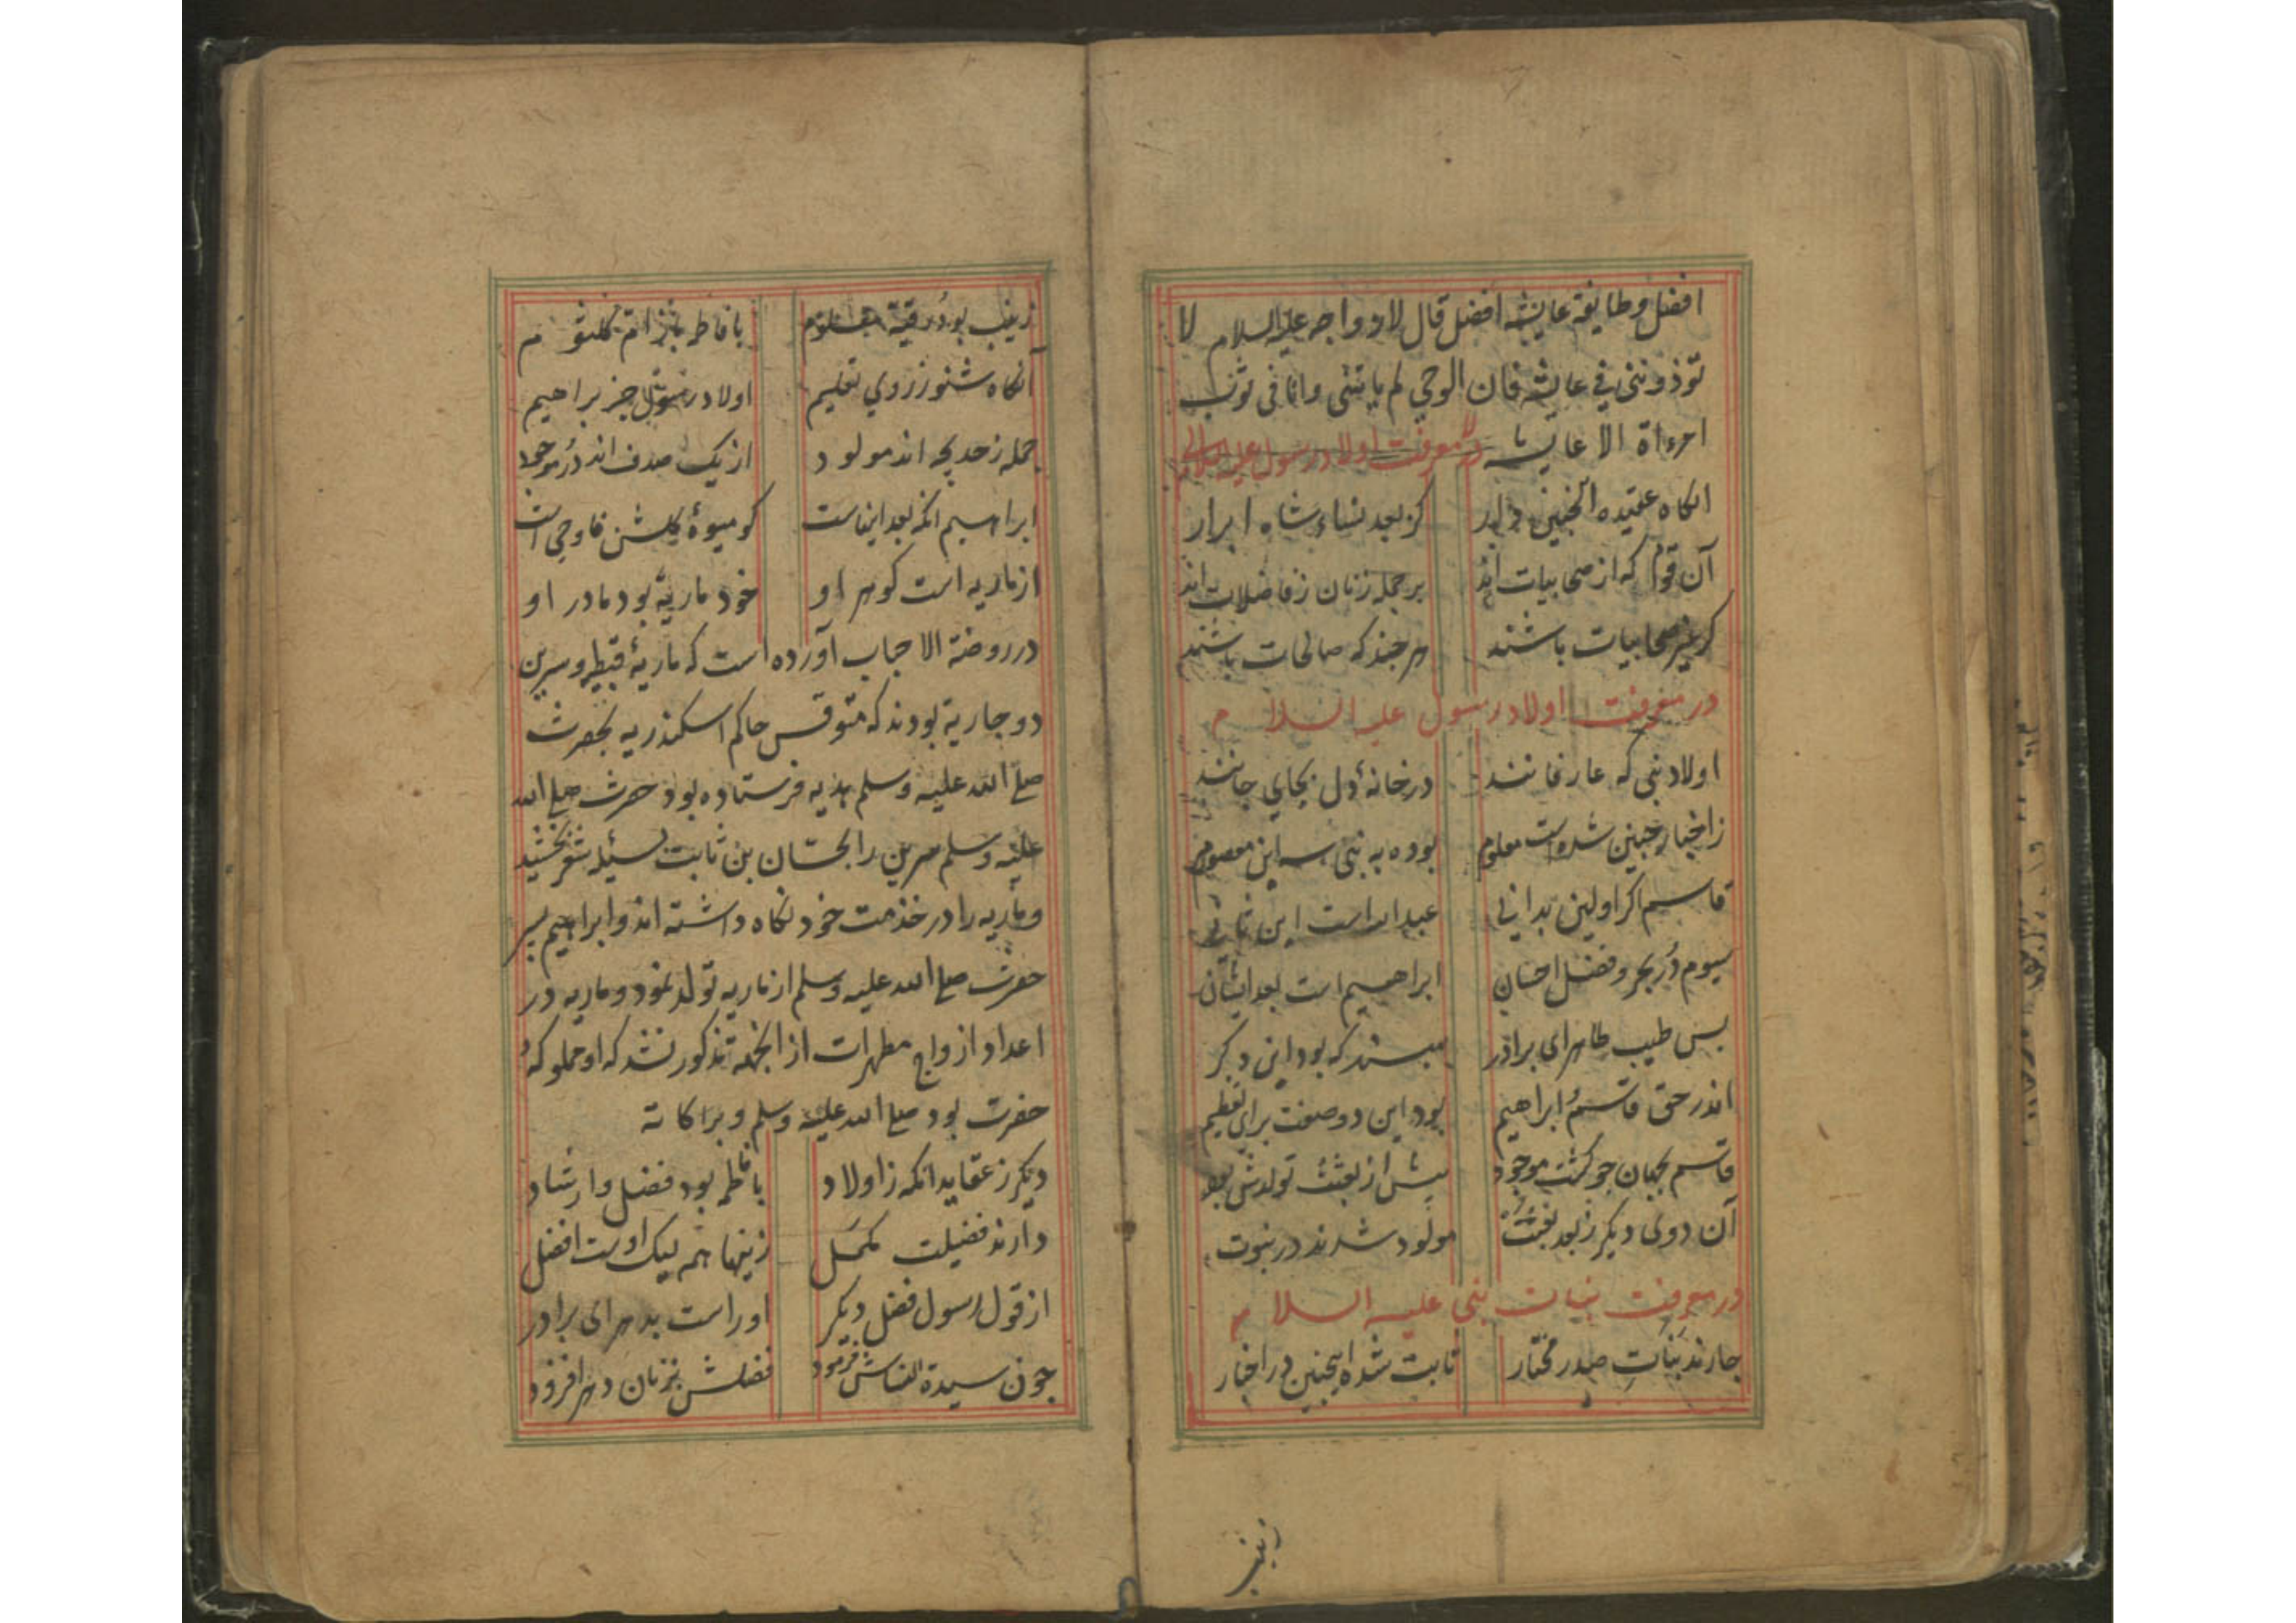 افضل وطایفهٔ عایشه افضل قال لازواجه علیه السلام لا
توذوننی فی عایشه فان الوحی لم یاتنی وانا فی ثوب
امرءاة الا عایشه در معرفت اولاد رسول علیه السلام
انکاه عقیده انجنین دار کز بعد نساء شاه ابرار
آن قوم که از صحابیات اند بر جمله زنان ز فاضلات اند
کر غیر صحابیات باشند هر جند که صالحات باشند
در معرفت اولاد رسول علیه السلام
اولاد نبی که عارفانند در خانهٔ دل بجای جانند
ز اخبار جنین شد است معلوم بوده به نبی سه ابن معصوم
قاسم اکر اولین بدانی عبد الله است ابن ثانی
سیوم در بحر و فضل احسان ابراهیم است بعد ایشان
بس طیب طاهر ای برادر که بود این دکر
اندر حق قاسم و ابراهیم بود این دو صفت برای تعظیم
قاسم بجهان جو کشت موجود بیش از بعثت تولدش بود
آن دوی دیکر ز بعد بعثت مولود شدند در نبوت
در معرفت بنات نبی علیه السلام
جارند بنات صدر مختار ثابت شده اینجنین در اخبار
زینب
زینب بود رقیه معلوم با فاطمه نیز ام کلثوم
آنکاه شنو ز روی تعلیم اولاد رسول جز براهیم
جمله ز خدیجه اند مولود از یک صدف اند در موجود
ابراهیم انکه بعد اینهاست کو میوهٔ کلشن فاوحی است
از ماریه است کوهر او خود ماریه بود مادر او
در روضة الاحباب آورده است که ماریهٔ قبطیه و سیرین
دو جاریة بودند که متوقس حاکم اسکندریه بحضرت
صلی الله علیه وسلم هدیه فرستاده بود حضرت صلی الله
علیه وسلم سرین را بحسّان بن ثابت بخشید
و ماریه را در خدمت خود نکاه داشته اند و ابراهیم بسر
حضرت صلی الله علیه وسلم از ماریه تولد نمود و ماریه در
اعداد ازواج مطهرات از انجهة مذکور نشد که او مملوکهٔ
حضرت بود صلی الله علیه وسلم وبراکاته
دیکر ز عقاید انکه ز اولاد با فاطمه بود فضل وارشاد
دارند فضیلت مکمل زینها همه لیک اوست افضل
از قول رسول فضل دیکر اوراست بدهر ای برادر
جون سیدة النساش فرمود فضلش بزنان دهر افزود